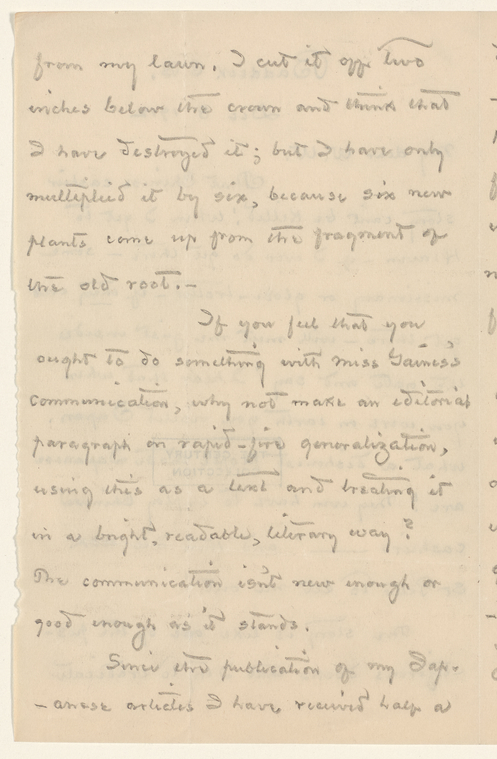 from my lawn. I cut it off two
inches below the crown and think that
I have destroyed it; but I have only
multiplied it by six, because six new
plants come up from the fragment of
the old root.—
If you feel that you
ought to do something with Miss Gaines's
communication, why not make an editorial
paragraph on rapid-fire generalization,
using this as a text and treating it
in a bright, readable, literary way?
The communication isn't new enough or
good enough as it stands.
Since the publication of my Jap-
-anese articles I have received half a